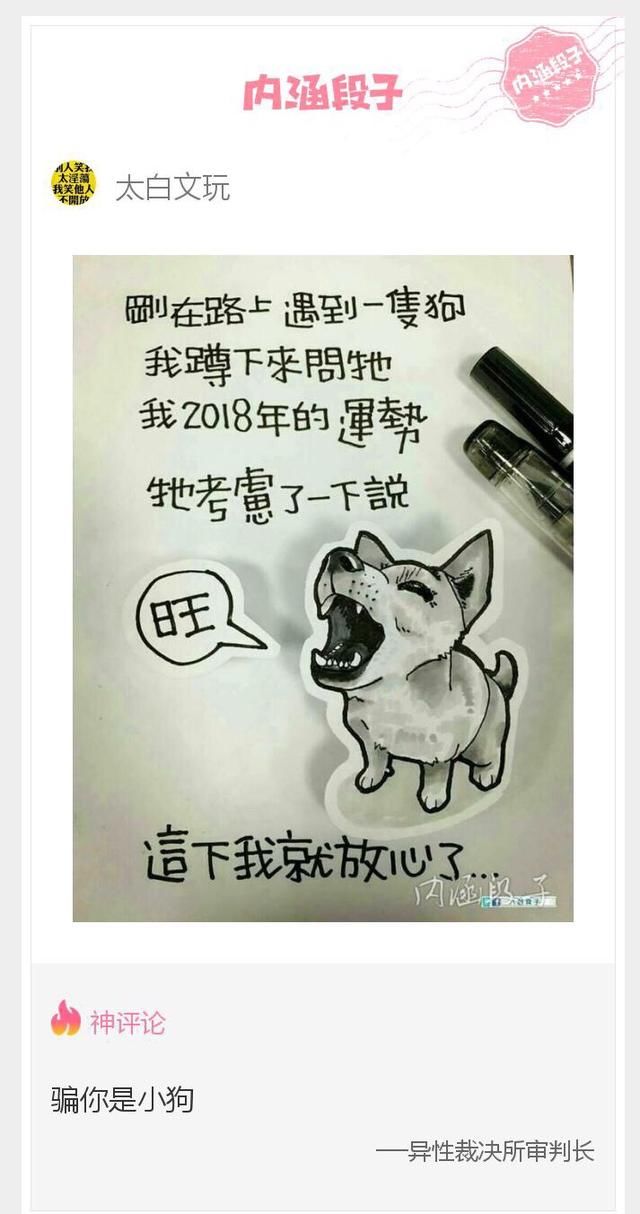 内涵段子
内涵段子
别人笑我
太淫蕩
我笑他人
不開放
太白文玩
剛在路上遇到一隻狗
我蹲下來問牠
我2018年的運勢
牠考慮了一下說
旺
這下我就放心了...
内涵段子
神评论
骗你是小狗
──异性裁决所审判长